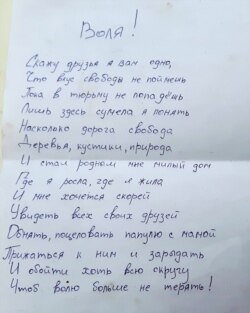 Воля!
Скажу друзья я вам одно,
Что вкус свободы не поймёшь
Пока в тюрьму не попадёшь
Лишь здесь сумела я понять
Насколько дорога свобода
Деревья, кустики, природа
И стал родном мне милый дом
Где я росла, где я жила
И мне хочется скорей
Увидеть всех своих друзей
Обнять, поцеловать папулю с мамой
Прижаться к ним и зарыдать
И обойти хоть всю округу
Чтоб волю больше не терять!